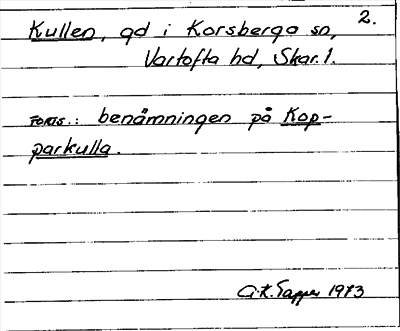 2.
Kullen, gd i Korsberga sn,
Vartofta hd, Skar. l.
FORTS.: benämningen på Kop-
parkulla.
G.K. Tapper 1973